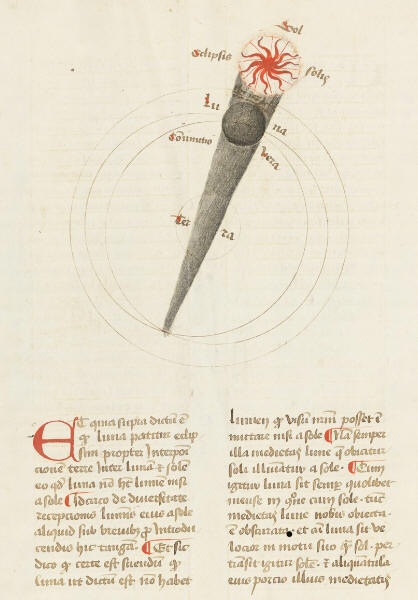 Sol
Eclipsis
solis
Lu
na
Coniunctio
vera
Ter
ra
Et quia supra dictū ē
qͩ luna patitur eclip
sim propter interpoſi
cionē terre inter lunā ⁊ solē
eo qͩ luna nō hꝫ lumē nisi
a sole Idcirco de diuersitate
recepcionis luminis eius a sole
aliquid sub breuibꝫ ꝓ introdu
cendis hic tangā. Et sic
dico qͩ certe est sciendū qͩ
luna ut dictū est nō habet
lumen qͩ visui nr̄m posset ī
mittare nisi a sole Nā semper
illa medietas lune q̄ obicitur
soli illuīatur a sole. Cum
igitur luna sit semꝑ quolibet
mense in ꝯiūc cum sole. tūc
medietas lune nobis obiecta
ē obscurata. et cū luna sit ve
locior in motu suo qͣ sol. ꝑ
transit igitur solē. ⁊ aliquātula
eius porcio illius medietatis